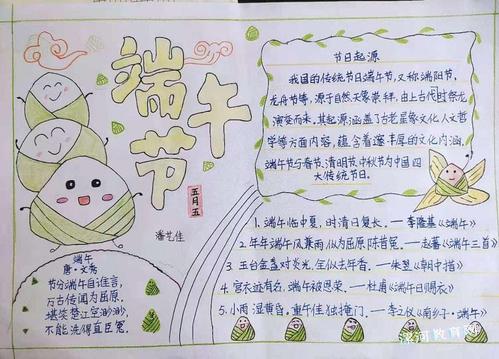 端午节
五月五
潘艺佳
端午
唐·文秀
节分端午自谁言,
万古传闻为屈原。
堪笑楚江空渺渺,
不能洗得直臣冤。
节日起源
我国的传统节日端午节,又称端阳节,
龙舟节等,源于自然天象崇拜,由上古代时祭龙
演变而来,其起源涵盖了古老星象文化,人文哲
学等方面内容,蕴含着邃丰厚的文化内涵,
端午节与春节、清明节、中秋节为中国四
大传统节日。
1. 端午临中夏,时清日复长。——李隆基《端午》
2. 年年端午风兼雨,似为屈原陈昔冤。——赵蕃《端午三首》
3. 玉台金盏对炎光,全似去年香。——朱翌《朝中措》
4. 宫衣亦有名,端午被恩荣。——杜甫《端午日赐衣》
5. 小雨湿黄昏,重午佳独掩门。——李之仪《南乡子·端午》
漯河教育网